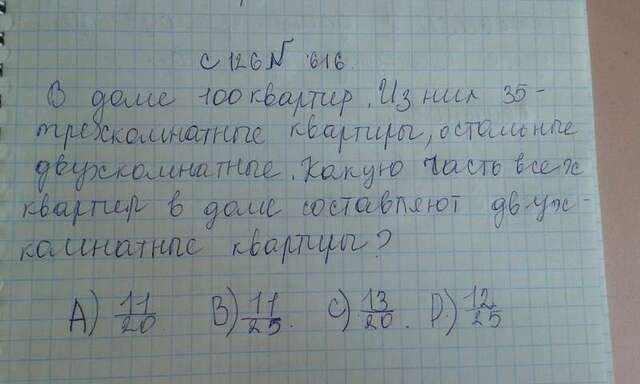 с 126 N 616.
В доме 100 квартир. Из них 35-
трехкомнатные квартиры, остальные
двухкомнатные. Какую часть всех
квартир в доме составляют двух-
комнатные квартиры?
A) 11/20 B) 11/25. C) 13/20. D) 12/25